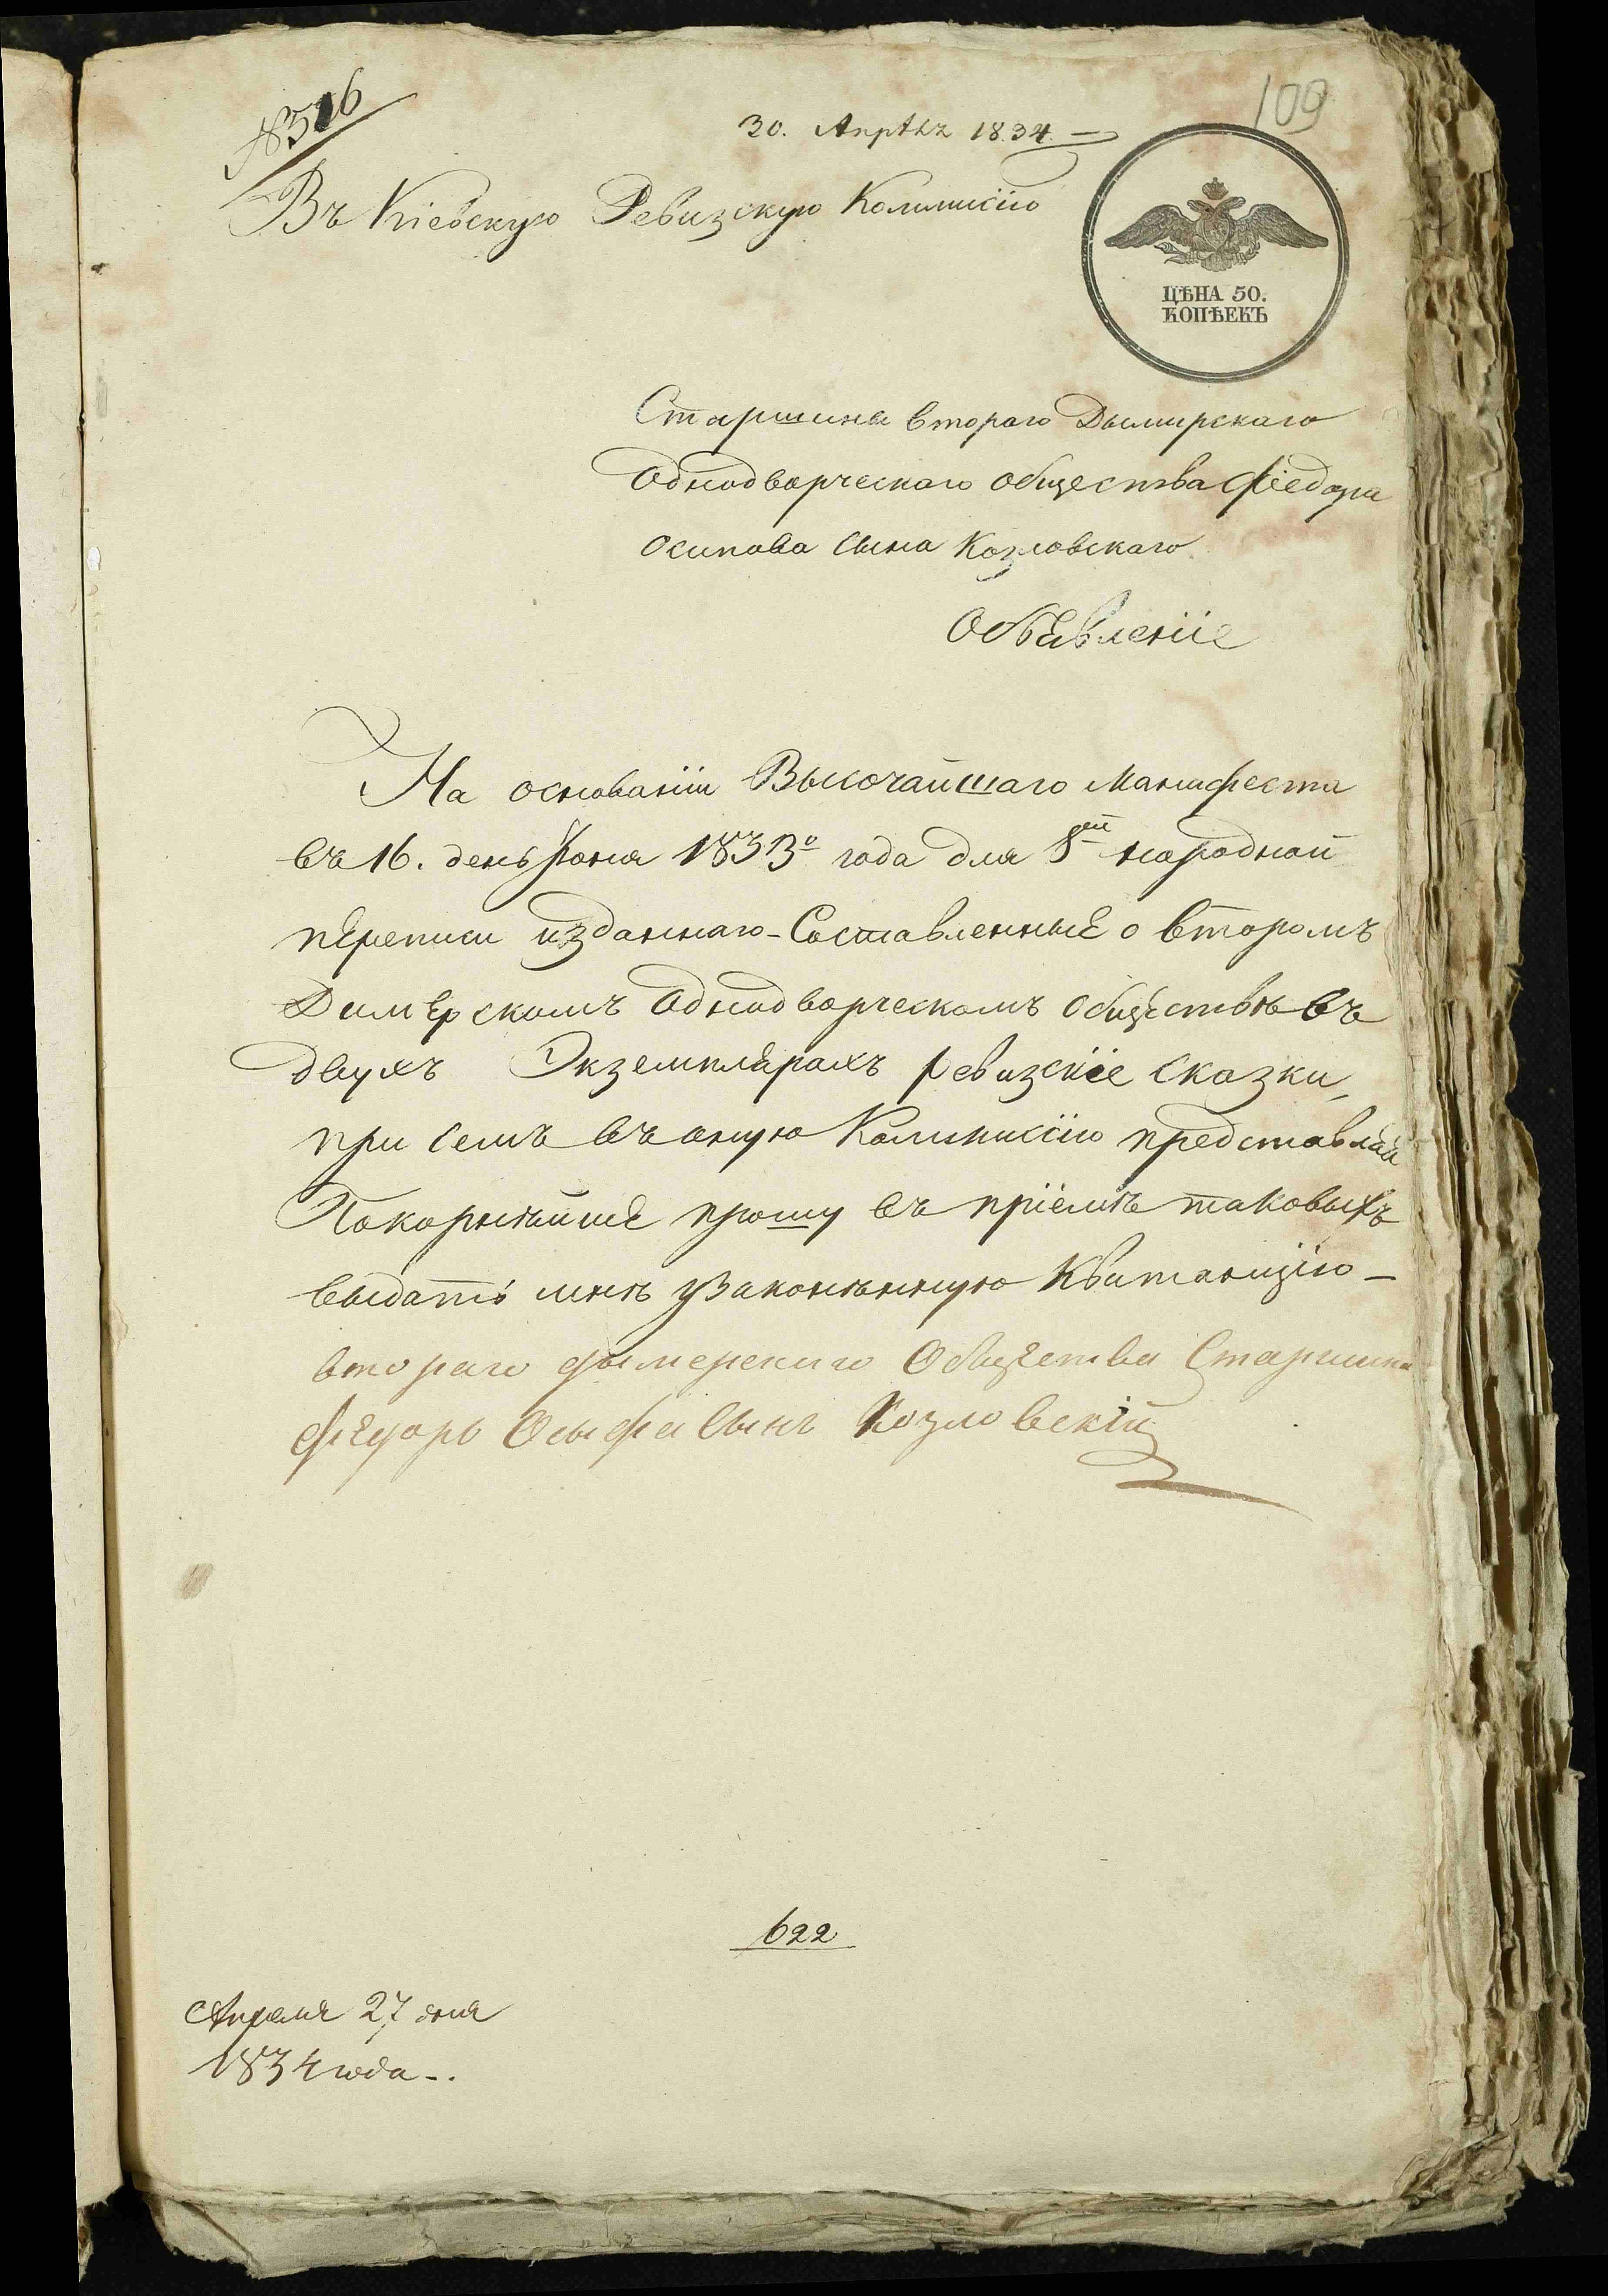 109
№ 516
30. Апрѣля 1834
Въ Кіевскую Ревизскую Коммисію
ЦѢНА 50.
КОПѢЕКЪ
Старшины втораго Дымирскаго
Однодворческаго общества Фіедора
Осипова сына Козловскаго
Объявленіе
На основаніи Высочайшаго Манифеста
въ 16. день Іюня 1833го года для 8ей народной
переписи изданнаго - Составленные о второмъ
Димерскомъ Однодворческомъ обществѣ въ
двухъ Экземплярахъ ревизскіе сказки,
при семъ въ оную Коммисію представляя
Покорнѣйше прошу въ пріемѣ таковыхъ
выдать мнѣ узаконѣнную Квитанцію —
втораго дымерскаго Общества Старшина
Федоръ Осыфа Сынъ Козловскій
622
Апреля 27 дня
1834 года -.